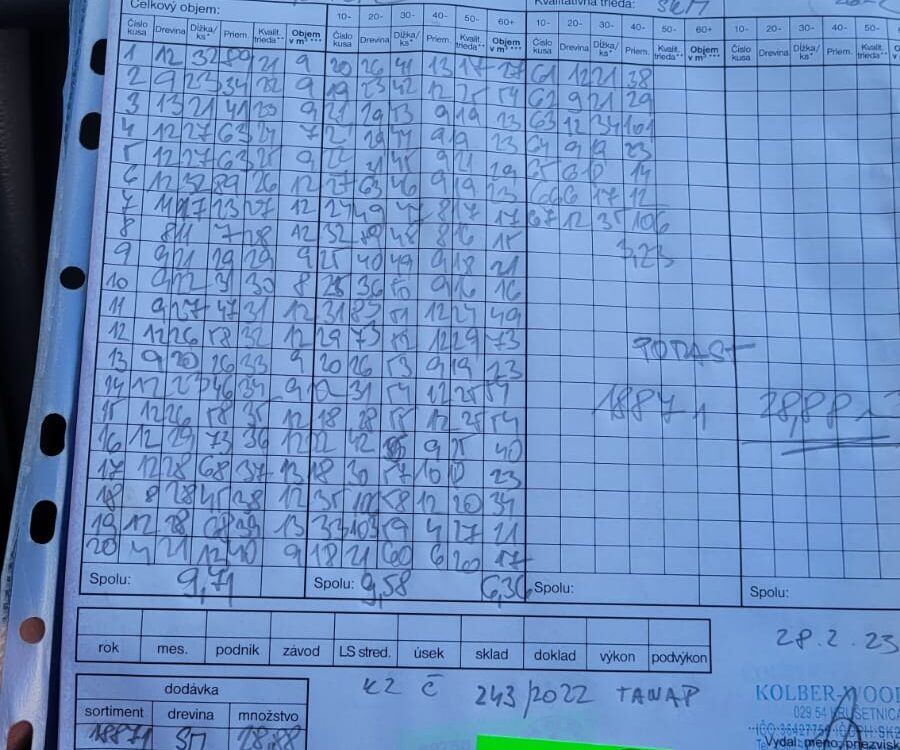 Celkový objem: 10- 20- 30- 40- 50- 60+ Kvalitatívna trieda: 10- 20- 30- 40- 50- 60+ 10- 20- 30- 40- 50-
Číslo kusa Drevina Dĺžka/ks* Priem. Kvalit. trieda** Objem v m³ *** Číslo kusa Drevina Dĺžka/ks* Priem. Kvalit. trieda** Objem v m³ *** Číslo kusa Drevina Dĺžka/ks* Priem. Kvalit. trieda** Objem v m³ *** Číslo kusa Drevina Dĺžka/ks* Priem. Kvalit. trieda**
1 12 32 89 21 9 20 26 41 13 17 27 61 12 21 38
2 9 23 34 22 9 19 23 42 12 25 54 62 9 21 29
3 13 21 41 23 9 21 29 43 9 19 23 63 12 34 101
4 12 27 63 24 7 27 44 9 19 23 64 9 19 23
5 12 27 63 25 9 22 31 45 9 21 29 65 14
6 12 32 89 26 12 27 63 46 9 19 23 66 6 17 12
7 11 17 23 27 12 24 49 47 8 17 17 67 12 35 106
8 8 11 7 28 12 32 89 48 8 16 15
3,23
9 9 21 29 29 9 25 40 49 9 18 21
10 9 22 31 30 8 36 50 9 16 16
11 9 27 47 31 12 31 83 51 12 24 49
12 12 26 58 32 12 29 73 52 12 29 73
13 9 20 26 33 9 20 26 53 9 19 23
14 12 23 46 34 9 22 31 54 12 25 54
1887 1 28,88
15 12 26 58 35 12 18 28 55 12 25 54
16 12 29 73 36 12 22 42 56 9 25 40
17 12 28 68 37 13 18 30 57 10 18 23
18 8 28 45 38 12 35 58 12 20 34
19 12 28 68 39 13 33 103 59 4 27 21
20 4 21 12 40 9 18 21 60 6 20 17
Spolu: 9,71 Spolu: 9,58 6,36 Spolu: Spolu:
rok mes. podnik závod LS stred. úsek sklad doklad výkon podvýkon
28.2.23
dodávka
KZ č 243/2022 TANAP
KOLBER-WOOD
sortiment drevina množstvo
029 54 KRUŠETNICA
18871 SM 28,88
Vydal: meno, priezvisk